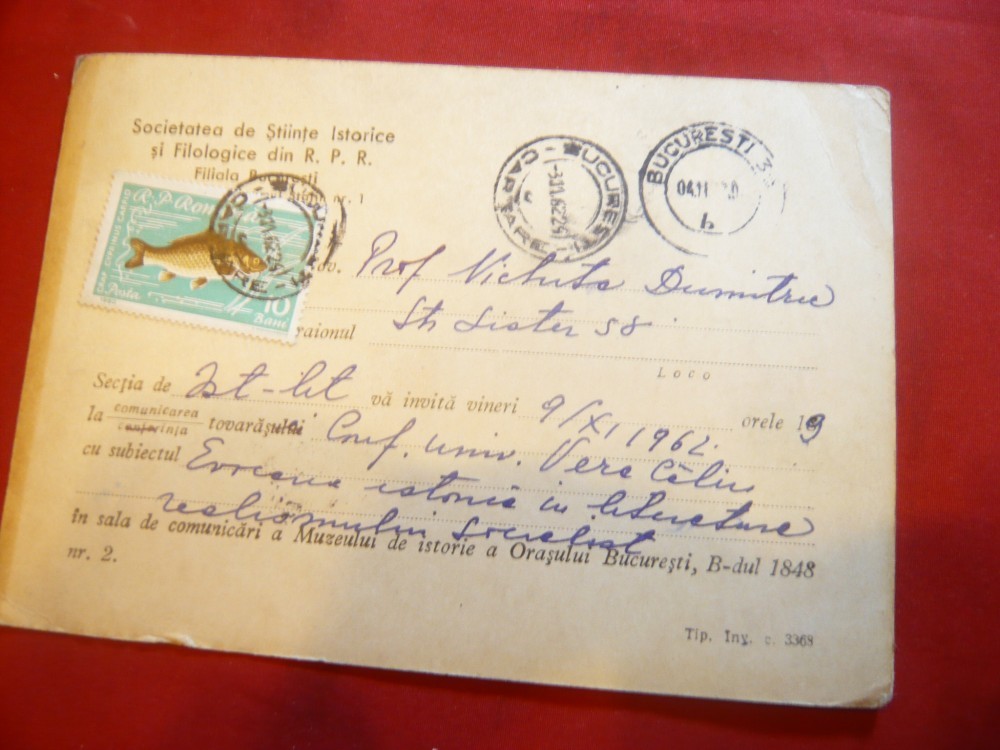 Societatea de Științe Istorice
și Filologice din R. P. R.
Filiala București
nr. 1
R.P. Romînă
CRAP CYPRINUS CARPIO
Posta
10
Bani
BUCUREȘTI
CARTARE
-3.11.62.24
BUCUREȘTI
CARTARE
-3.11.62.24
BUCUREȘTI
04.11
b
Tov. Prof Nichita Dumitru
raionul Str Lister 58
Loco
Secția de Ist-lit vă invită vineri 9/XI 1962. orele 19
la comunicarea conferința tovarășului Conf. univ. Vera Călin
cu subiectul Evocarea istorică în literatura
realismului socialist
în sala de comunicări a Muzeului de istorie a Orașului București, B-dul 1848
nr. 2.
Tip. Inv. c. 3368